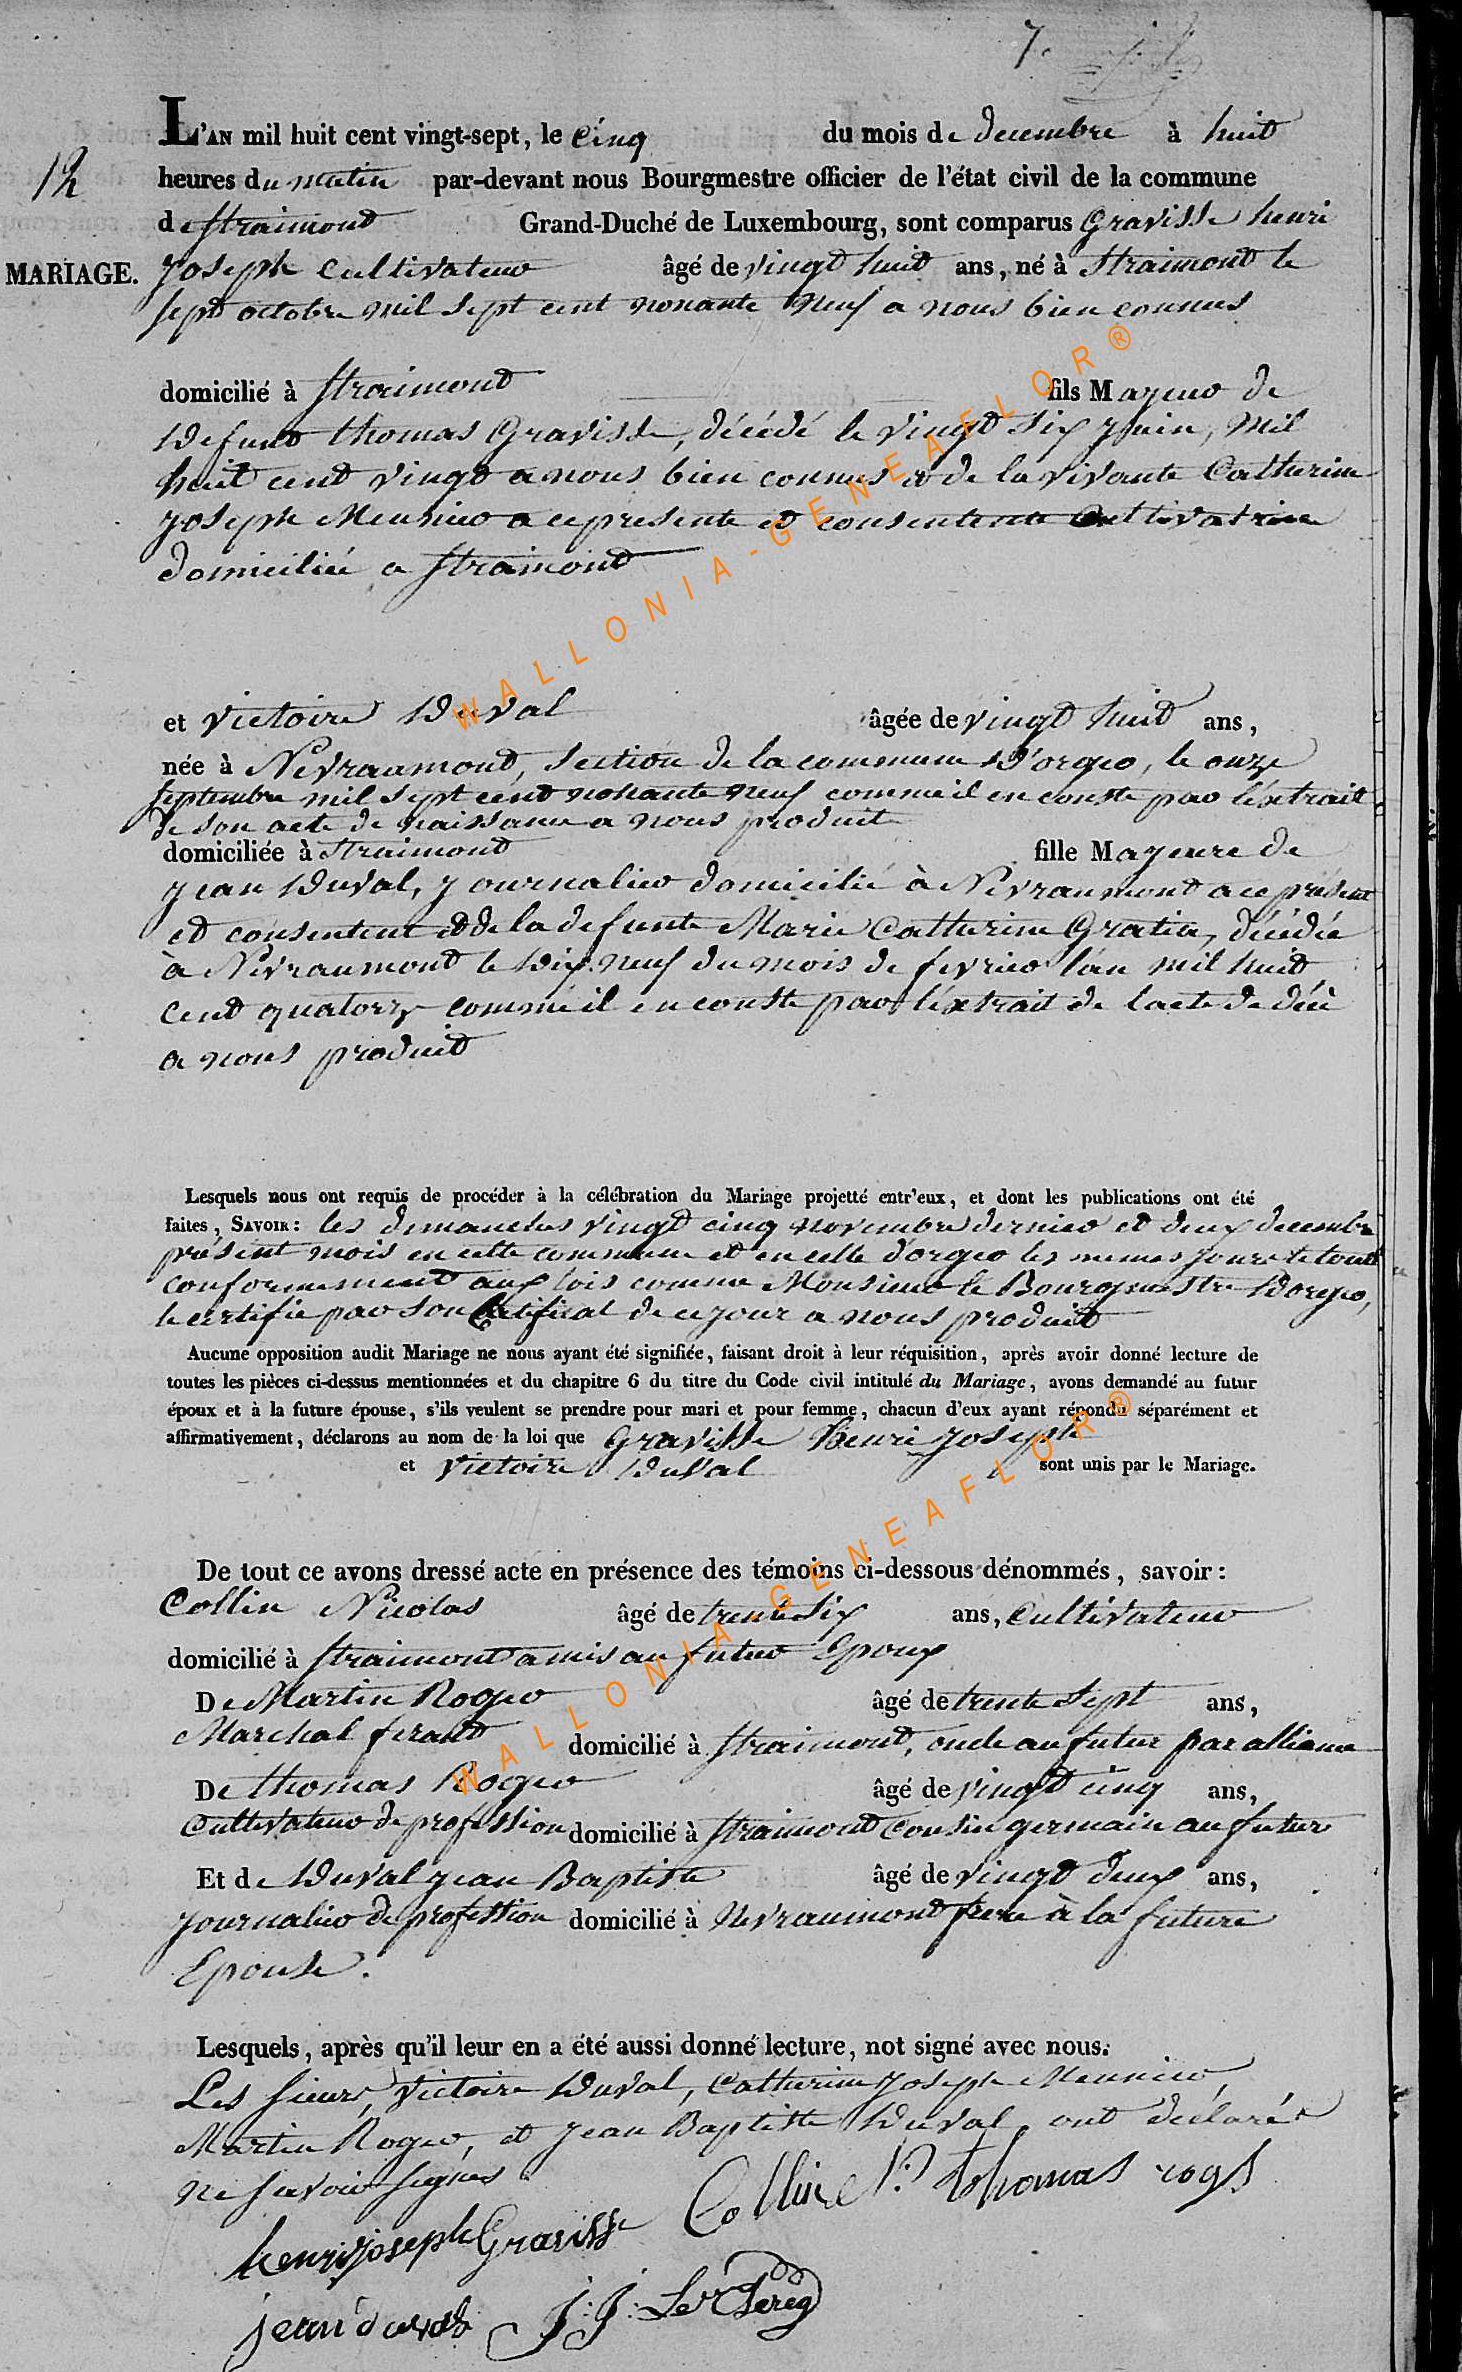 7e
L'AN mil huit cent vingt-sept, le cinq du mois de decembre à huit
12
heures du matin par-devant nous Bourgmestre officier de l'état civil de la commune
de Straimont Grand-Duché de Luxembourg, sont comparus Gravisse henri
MARIAGE.
Joseph cultivateur âgé de vingt huit ans, né à Straimont le
sept octobre mil sept cent nonante neuf a nous bien connus
domicilié à Straimont fils Majeur de
Defunt thomas Gravisse, décédé le vingt six juin, mil
huit cent vingt a nous bien connus et de la vivante Catherine
Joseph Meunier a ce presente et consentente Cultivatrice
domiciliée a Straimont
et victoire Duval âgée de vingt huit ans,
née à Nevraumont, Section de la commune D'orgeo, le onze
septembre mil sept cent nonante neuf comme il en conste par l'extrait
de son acte de naissance a nous produit
domiciliée à Straimont fille Majeure de
jean Duval, Journalier domicilié à Nevraumont a ce présent
et consentent et de la defunte Marie Catherine Gratia, décédée
à Nevraumont le Dix neuf du mois de fevrier l'an mil huit
cent quatorze comme il en conste par l'extrait de l'acte de décè
a nous produit
Lesquels nous ont requis de procéder à la célébration du Mariage projetté entr'eux, et dont les publications ont été
faites, SAVOIR: les dimanches vingt cinq novembre dernier et deux decembre
présent mois en cette commune et en celle d'orgeo les memes jours le tout
conformement aux lois comme Monsieur le Bourgmestre Dorgeo,
le certifie par son Certificat de ce jour a nous produit
Aucune opposition audit Mariage ne nous ayant été signifiée, faisant droit à leur réquisition, après avoir donné lecture de
toutes les pièces ci-dessus mentionnées et du chapitre 6 du titre du Code civil intitulé du Mariage, avons demandé au futur
époux et à la future épouse, s'ils veulent se prendre pour mari et pour femme, chacun d'eux ayant répondu séparément et
affirmativement, déclarons au nom de la loi que Gravisse Henri Joseph
et Victoire Duval sont unis par le Mariage.
De tout ce avons dressé acte en présence des témoins ci-dessous dénommés, savoir:
Collin Nicolas âgé de trente six ans, Cultivateur
domicilié à Straimont amis au futur Epoux
De Martin Roger âgé de trente sept ans,
Marchal ferant domicilié à Straimont, oncle au futur par alliance
De thomas Roger âgé de vingt cinq ans,
Cultivateur de profession domicilié à Straimont cousin germain au futur
Et de Duval jean Baptiste âgé de vingt deux ans,
journalier de profession domicilié à Nevraumont frere à la future
Epouse.
Lesquels, après qu'il leur en a été aussi donné lecture, not signé avec nous.
Les sieurs, Victoire Duval, Catherine Joseph Meunier,
Martin Roger, et jean Baptiste Duval, ont déclaré
ne savoir signés
Collin N. thomas rogs
henri joseph Gravisse
jean duval J: J: Le Clereq
WALLONIA-GENEAFLOR®
WALLONIA-GENEAFLOR®